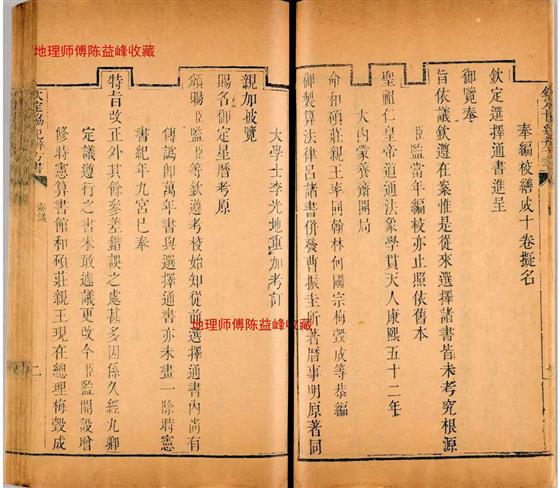 地理师傅陈益峰收藏
奉編校繕成十卷擬名
欽定選擇通書進呈
御覽奉
旨依議欽遵在案惟是從來選擇諸書皆未考究根源
臣監當年編校亦止照依舊本
聖祖仁皇帝道通法象學貫天人康熙五十二年
大內蒙養齋開局
命和碩莊親王率同翰林何國宗梅瑴成等恭編
御製算法律呂諸書併發曹振圭所著曆事明原著同
大學士李光地重加考訂
親加披覽
賜名御定星曆考原
頒賜臣監臣等欽遵考校始知從前選擇通書內尚有
傳譌即萬年書與選擇通書亦未畫一除時憲
書紀年九宮已奉
特旨改正外其餘參差錯誤之處甚多因係久經九卿
定議遵行之書未敢遽議更改今臣監開設增
修時憲算書館和碩莊親王現在總理梅瑴成
欽定協紀辨方書
奏議
二
地理师傅陈益峰收藏